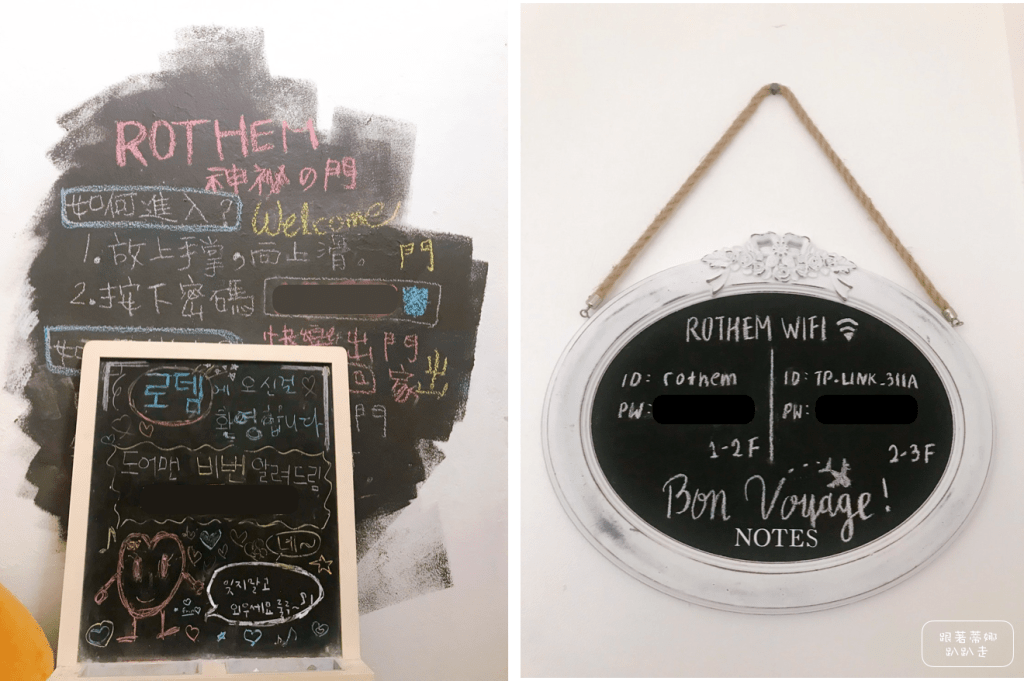 ROTHEM
神祕の門
如何進入?
Welcome
1.放上手掌,向上滑。
門
2.按下密碼
出門
家
出
門
로뎀에 오신걸
환영합니다
도어맨 비번 알려드림
네~
잊지말고
외우세요
ROTHEM WIFI
ID: rothem
PW:
1-2F
ID: TP-LINK-311A
PW:
2-3F
Bon Voyage!
NOTES
跟著蒂娜
趴趴走